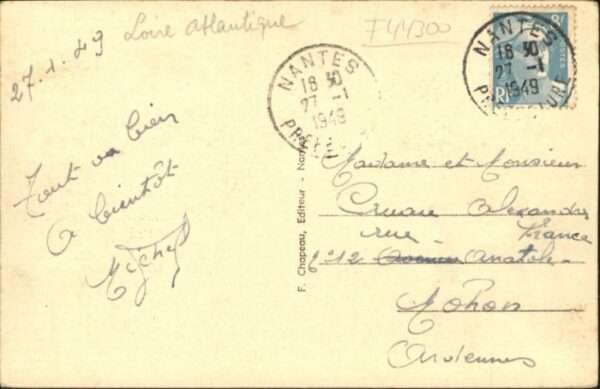 Loire Atlantique
F44300
27.1.49
Tout va bien
A bientôt
Michel
NANTES
18 30
27 -1
1949
NANTES
18 30
27 -1
1949
PRÉFECTURE
F. Chapeau, Editeur - Nantes
Madame et Monsieur
Alexandre
rue France
n° 12 Avenue Anatole
Mohon
Ardennes